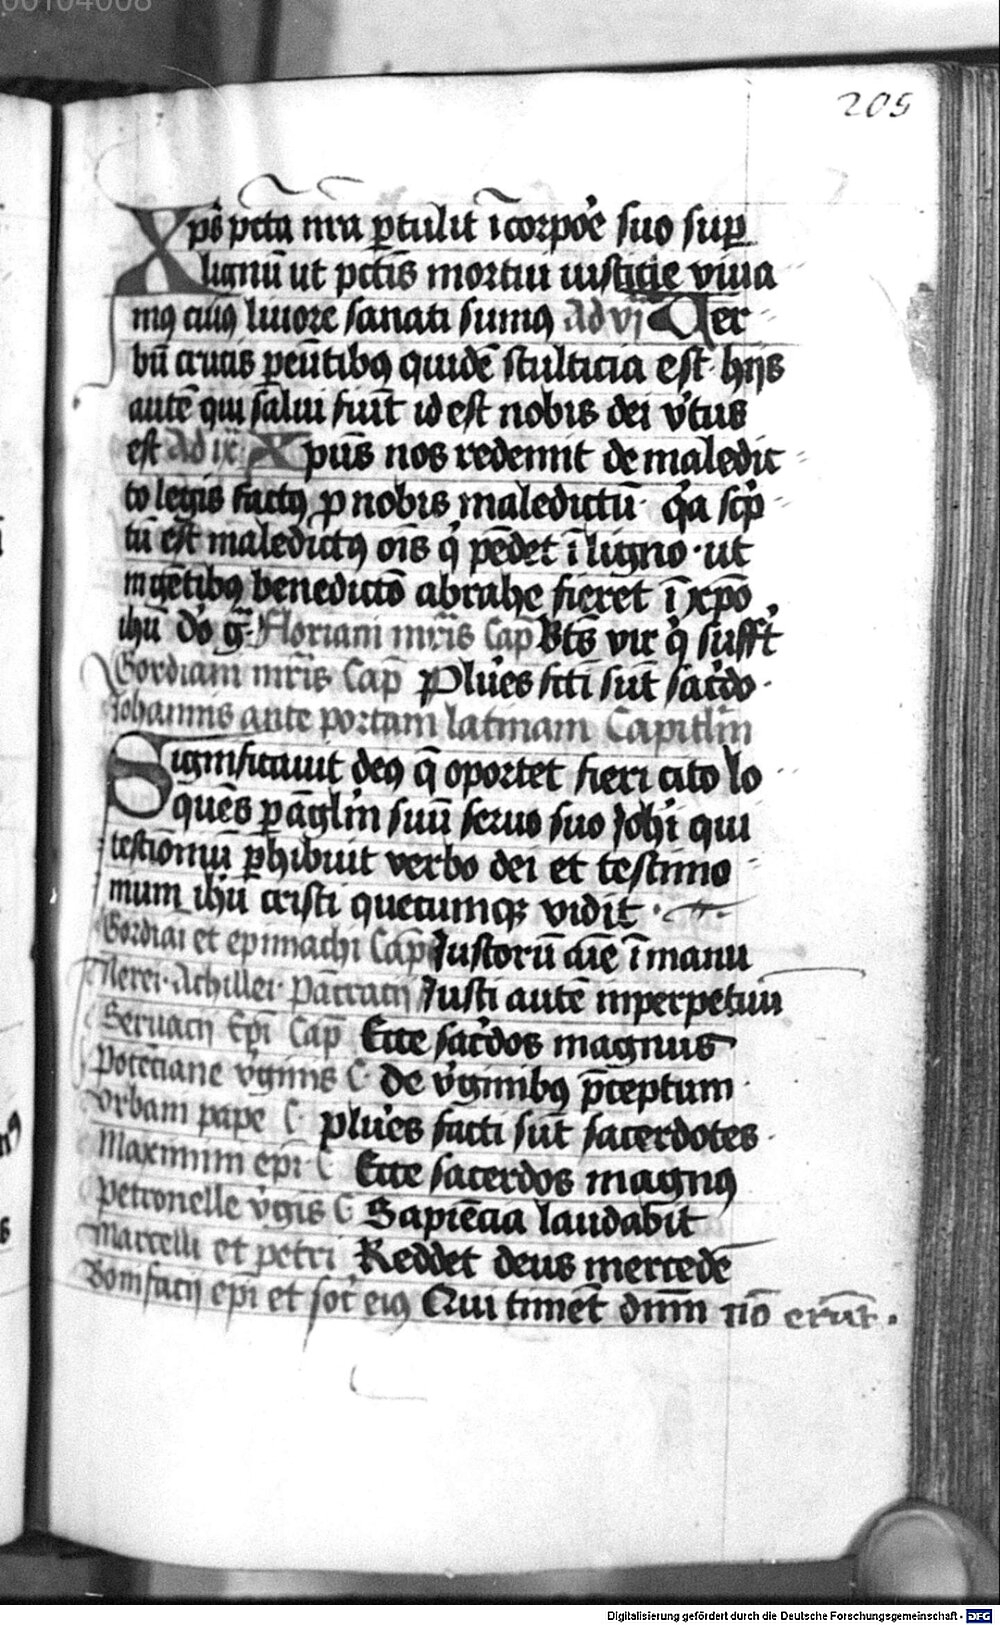 205
Xp̄s pctā nr̄a ꝑtulit ī corpoꝛe suo suꝑ
lignū ut pctīs mortui iusticie viua
mꝯ cuiꝯ liuoꝛe sanati sumꝯ Ad vj Uer
bū crucis peūtibꝯ quidē stulticia est hijs
autē qui salui fiūt id est nobis dei v̓tus
est Ad ix Xpūs nos redemit de maledic
to legis factꝯ ꝓ nobis maledictū· q̓a sc̓p
tū est maledictꝯ oīs q̓ pēdet ī ligno· ut
in gētibꝯ benedictō abrahe fieret ī xpō
ihū dō gr̄· Floriani mr̄is Cap̄ Bt̄s vir q̓ sufft̓
Gordiani mr̄is Cap̄ Plu̓es fc̄ti sūt sac̓do·
Johannis ante portam latinam Capitlm̄
Significauit deꝯ q̄ oportet fieri cito lo
quēs ꝑ āglm̄ suū seruo suo Johī qui
testiōniū ꝑhibuit verbo dei et testimo
nium ihū cristi quecumqꝫ vidit·
Gordiai et epimachi Cap̄ Justorū aīe ī manu
Nerei· Achillei· Pācracij Justi autē inperpetuū
Seruacij Ep̄i Cap̄ Ecce sac̓dos magnus
Potēciane v̓ginis C· De v̓ginibꝯ p̄ceptum·
Vrbani pape C· plu̓es facti sūt sacerdotes·
Maximini ep̄i· C Ecce sacerdos magnꝯ
Petronelle v̓gīs C Sapiēcia laudabit
Marcelli et petri Reddet deus mercedē
Bonifacij ep̄i et soc̓ eiꝯ Qui timēt dnm̄ nō erūt·
Digitalisierung gefördert durch die Deutsche Forschungsgemeinschaft - DFG